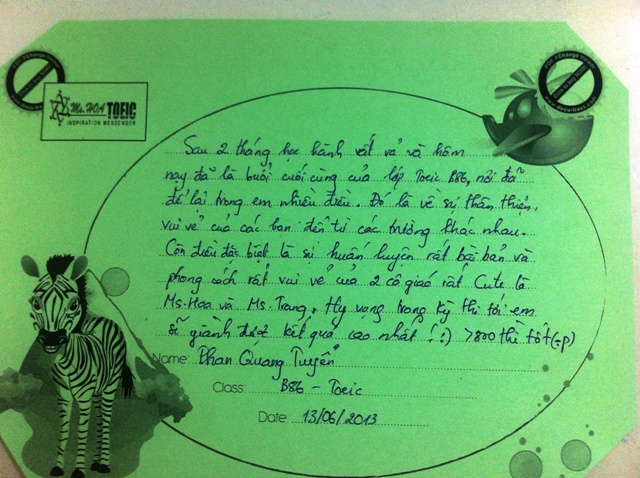 Ms. HOA TOEIC
INSPIRATION MESSENGER
Sau 2 tháng học hành vất vả và hôm
nay đã là buổi cuối cùng của lớp Toeic B86, nơi đã
để lại trong em nhiều điều. Đó là về sự thân thiện,
vui vẻ của các bạn đến từ các trường khác nhau.
Còn điều đặc biệt là sự huấn luyện rất bài bản và
phong cách rất vui vẻ của 2 cô giáo rất Cute là
Ms. Hoa và Ms. Trang. Hy vọng trong kỳ thi tới em
sẽ giành được kết quả cao nhất! :) >800 thì tốt (:p)
Name: Phan Quang Tuyển
Class: B86 - Toeic
Date 13/06/2013